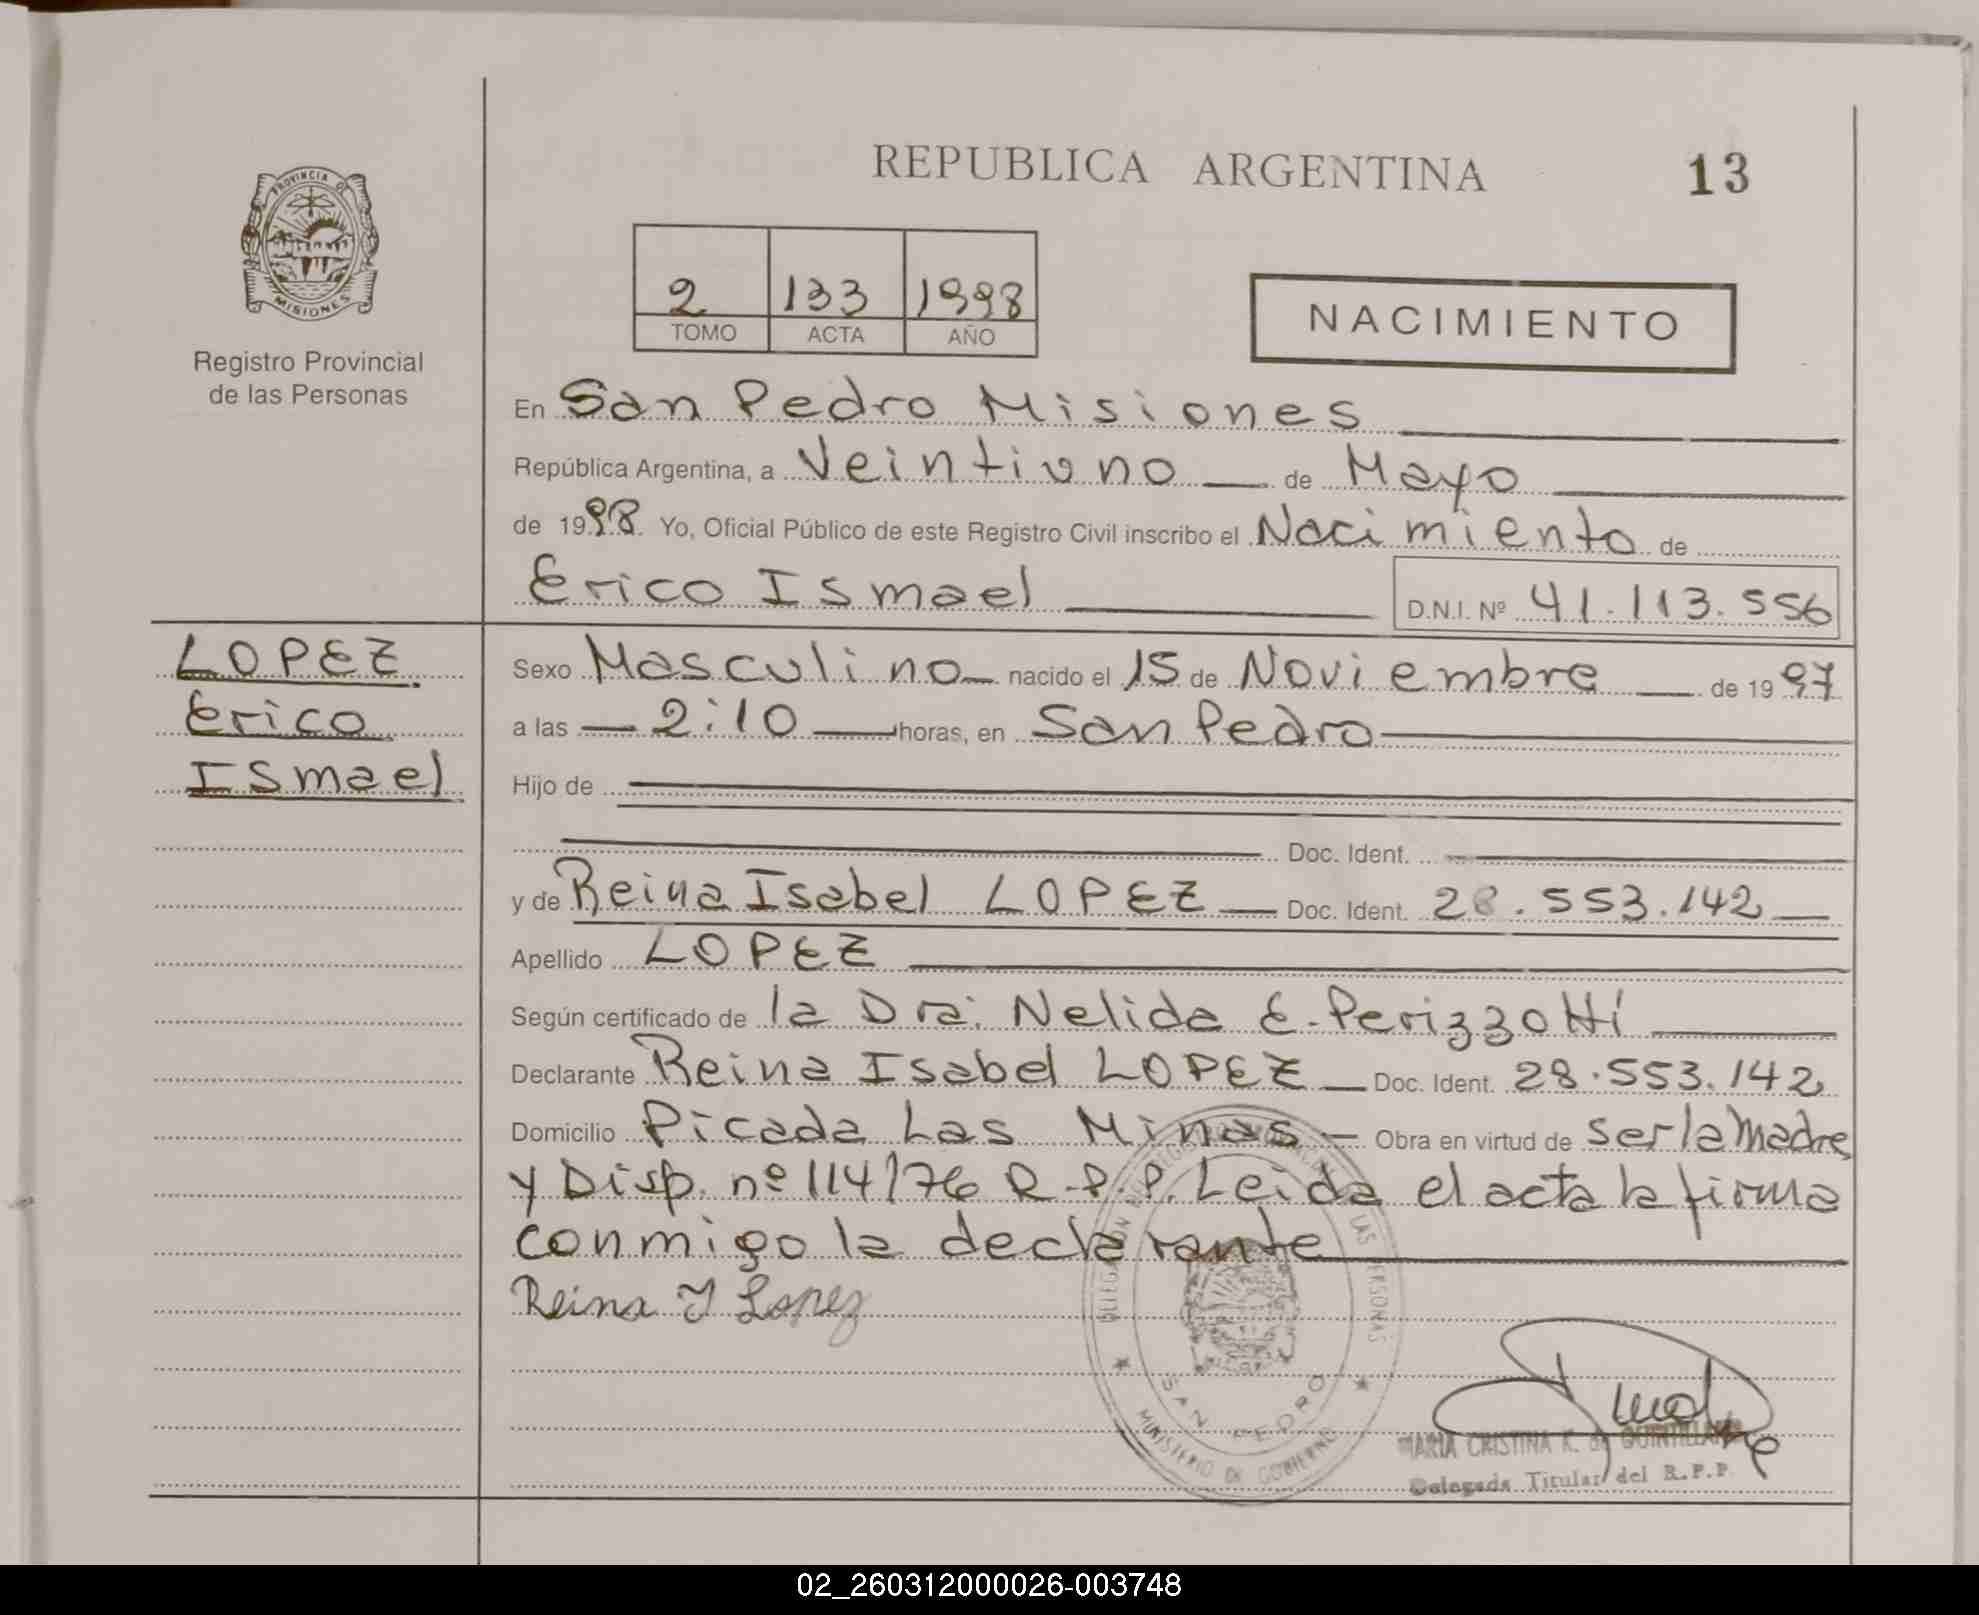 REPUBLICA ARGENTINA
13
PROVINCIA DE
MISIONES
Registro Provincial
de las Personas
2 133 1998
TOMO ACTA AÑO
NACIMIENTO
En San Pedro Misiones
República Argentina, a Veintiuno de Mayo
de 1998 Yo, Oficial Público de este Registro Civil inscribo el Nacimiento de
Erico Ismael D.N.I. Nº 41.113.556
LOPEZ
Erico
Ismael
Sexo Masculino nacido el 15 de Noviembre de 1997
a las 2:10 horas, en San Pedro
Hijo de
Doc. Ident.
y de Reina Isabel LOPEZ Doc. Ident. 28.553.142
Apellido LOPEZ
Según certificado de la Dra. Nelida E. Perizzotti
Declarante Reina Isabel LOPEZ Doc. Ident. 28.553.142
Domicilio Picada Las Minas Obra en virtud de ser la Madre
y Disp. nº 114/76 R.P.P. Leida el acta la firma
conmigo la declarante
Reina Y Lopez
LAS PERSONAS
SAN PEDRO
MINISTERIO DE GOBIERNO
MARIA CRISTINA K. de QUINTILLAN
Delegada Titular del R.P.P.
02_260312000026-003748